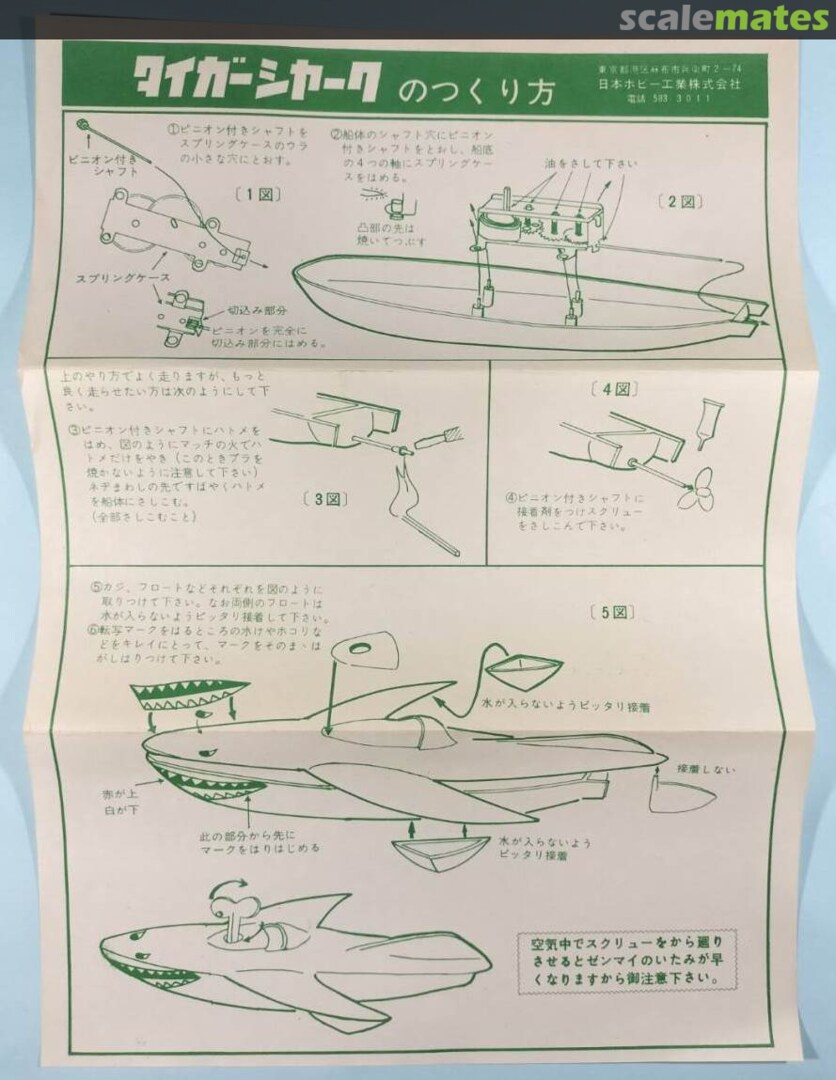 scalemates
タイガーシャークのつくり方
日本ホビー工業株式会社
電話 583 3011
①ピニオン付きシャフトを
スプリングケースのウラ
の小さな穴にとおす。
ピニオン付き
シャフト
〔1図〕
スプリングケース
切込み部分
ピニオンを完全に
切込み部分にはめる。
②船体のシャフト穴にピニオン
付きシャフトをとおし、船底
の4つの軸にスプリングケー
スをはめる。
油をさして下さい
〔2図〕
凸部の先は
焼いてつぶす
上のやり方でよく走りますが、もっと
良く走らせたい方は次のようにして下
さい。
③ピニオン付きシャフトにハトメを
はめ、図のようにマッチの火でハ
トメだけをやき(このときプラを
焼かないように注意して下さい)
ネヂまわしの先ですばやくハトメ
を船体にさしこむ。
(全部さしこむこと)
〔3図〕
〔4図〕
④ピニオン付きシャフトに
接着剤をつけスクリュー
をさしこんで下さい。
⑤カジ、フロートなどそれぞれを図のように
取りつけて下さい。なお両側のフロートは
水が入らないようピッタリ接着して下さい。
⑥転写マークをはるところの水けやホコリな
どをキレイにとって、マークをそのまゝは
がしはりつけて下さい。
〔5図〕
水が入らないようピッタリ接着
接着しない
赤が上
白が下
此の部分から先に
マークをはりはじめる
水が入らないよう
ピッタリ接着
空気中でスクリューをから廻り
させるとゼンマイのいたみが早
くなりますから御注意下さい。